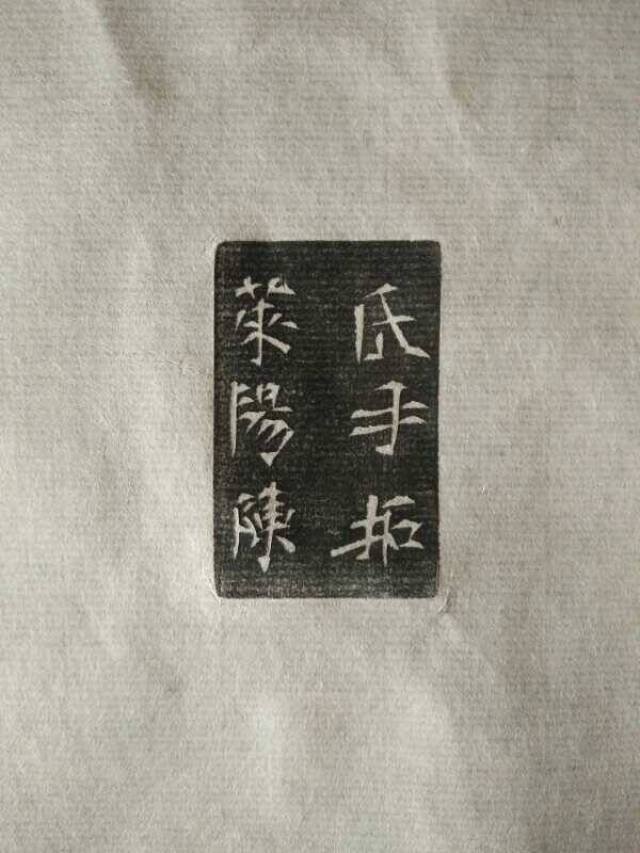 萊陽陳
氏手拓